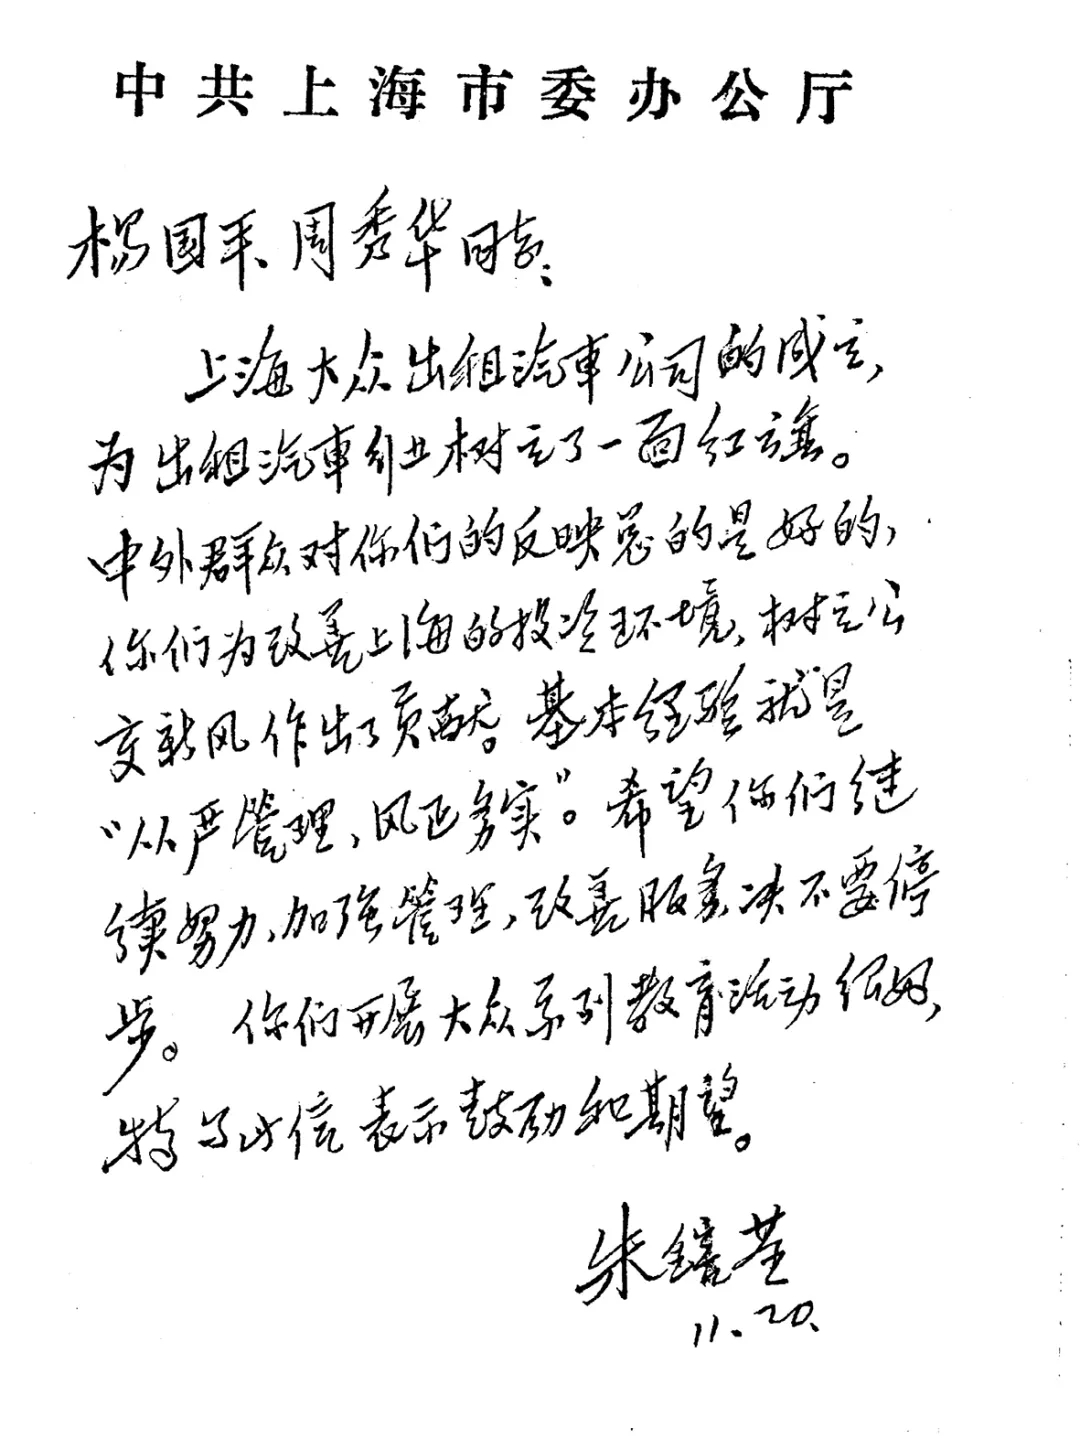 中共上海市委办公厅
杨国平、周秀华同志:
上海大众出租汽車公司的成立,
为出租汽車行业树立了一面红旗。
中外群众对你们的反映总的是好的,
你们为改善上海的投资环境、树立公
交新风作出了贡献。基本经验就是
“从严管理,风正务实”。希望你们继
续努力、加强管理,改善服务决不要停
步。你们开展大众系列教育活动很好,
特写此信表示鼓励和期望。
朱镕基
11.20.